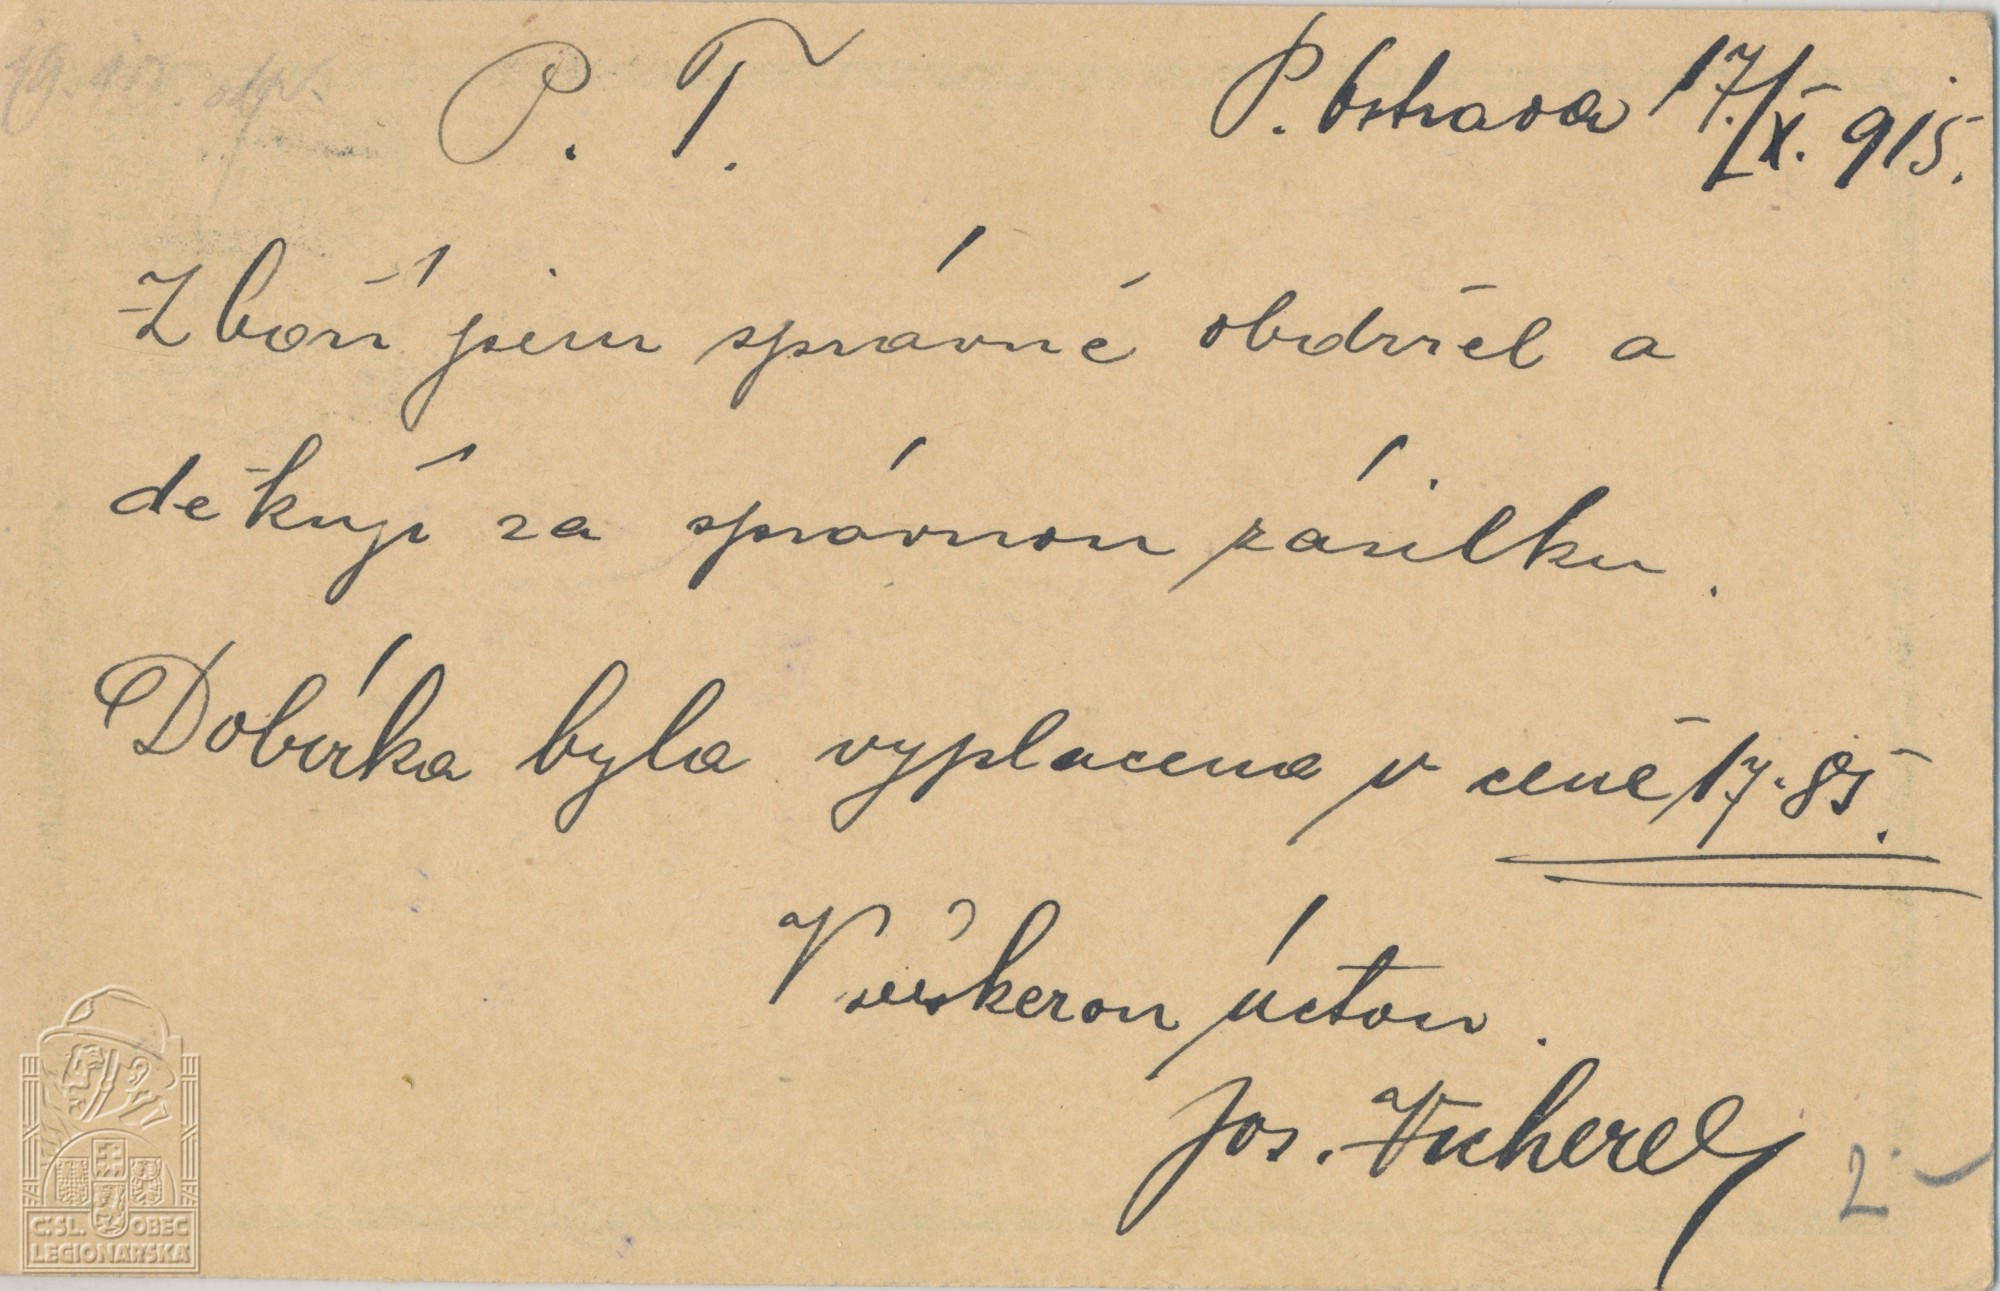 P. T.
P. Ostrava 17./IX. 915.
Zboží jsem správně obdržel a
děkuji za správnou zásilku.
Dobírka byla vyplacena v ceně 17.85.
Veškerou úctou.
Jos.
2.-
Č.SL. OBEC
LEGIONÁŘSKÁ